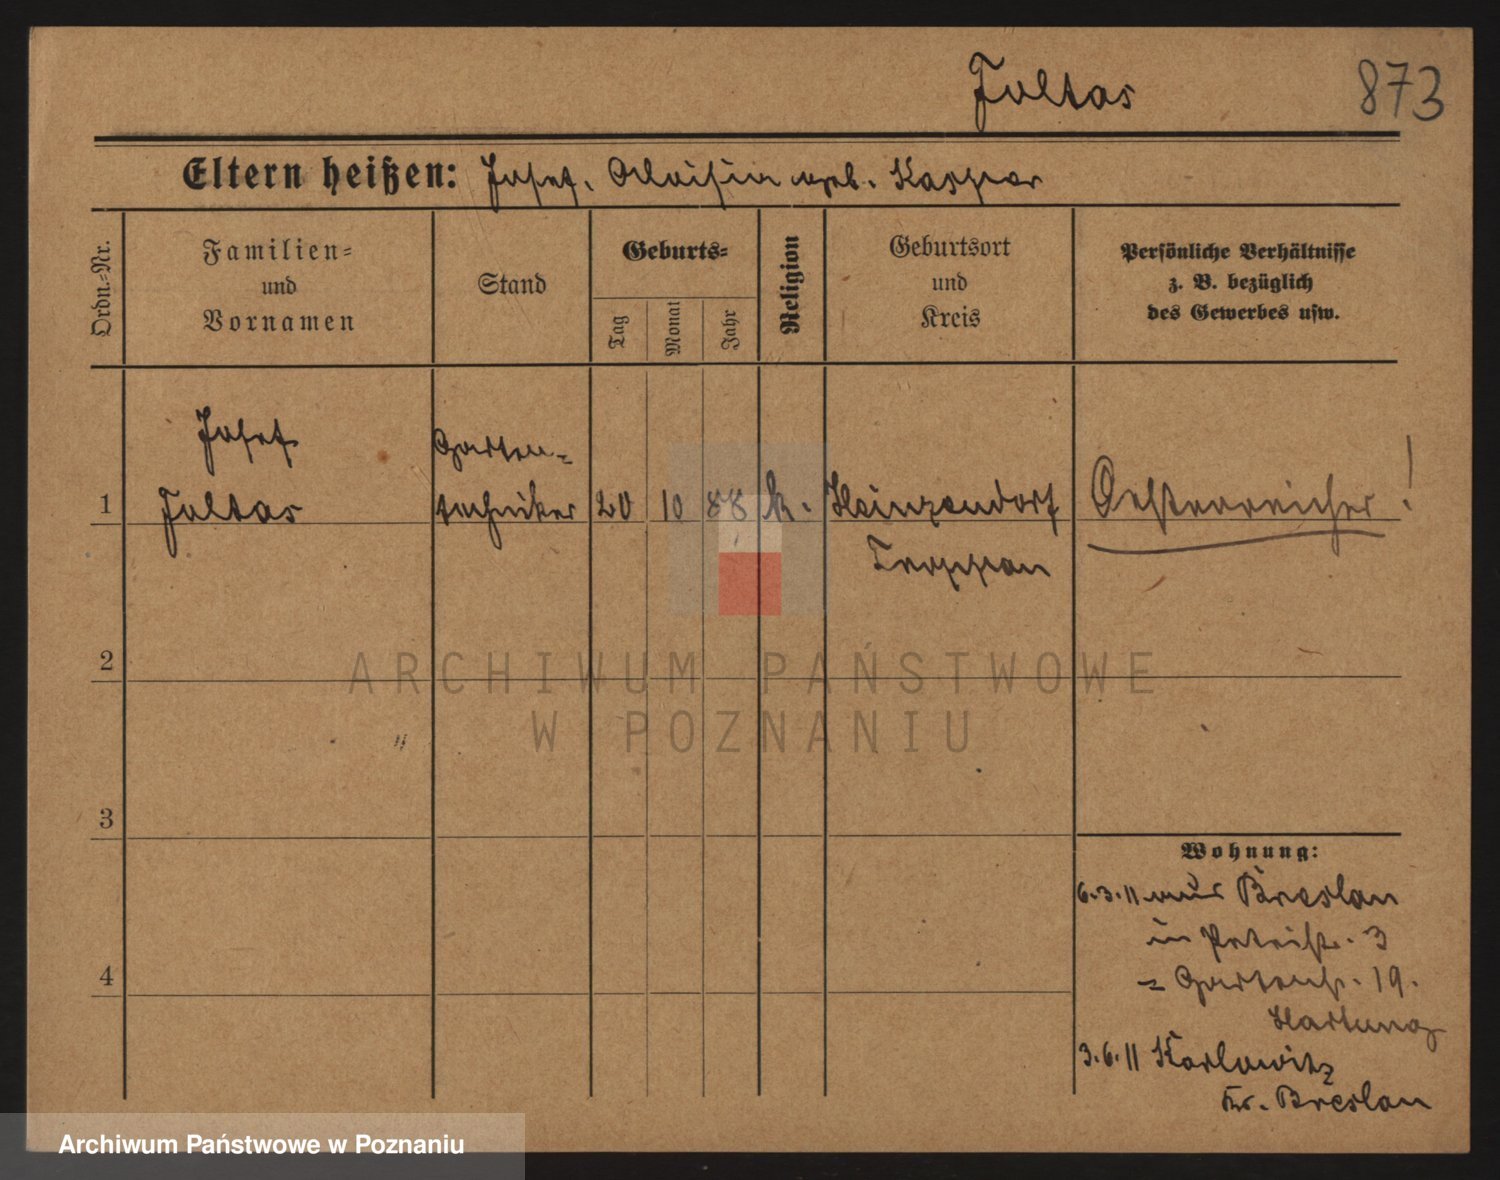 Foltas 873
Eltern heißen: Josef, Aloisia geb. Kaspar
Ordn.-Nr.
Familien-
und
Vornamen
Stand
Geburts-
Tag
Monat
Jahr
Religion
Geburtsort
und
Kreis
Persönliche Verhältnisse
z. B. bezüglich
des Gewerbes usw.
Josef Garten-
1 Foltas techniker 20 10 88 k. Heinzendorf Oesterreicher!
Troppau
ARCHIWUM PAŃSTWOWE
2
W POZNANIU
3
Wohnung:
6.3.11 aus Breslau
in Petristr. 3
4
= Gartenstr. 19.
Hartung
3.6.11 Karlowitz
Kr. Breslau
Archiwum Państwowe w Poznaniu